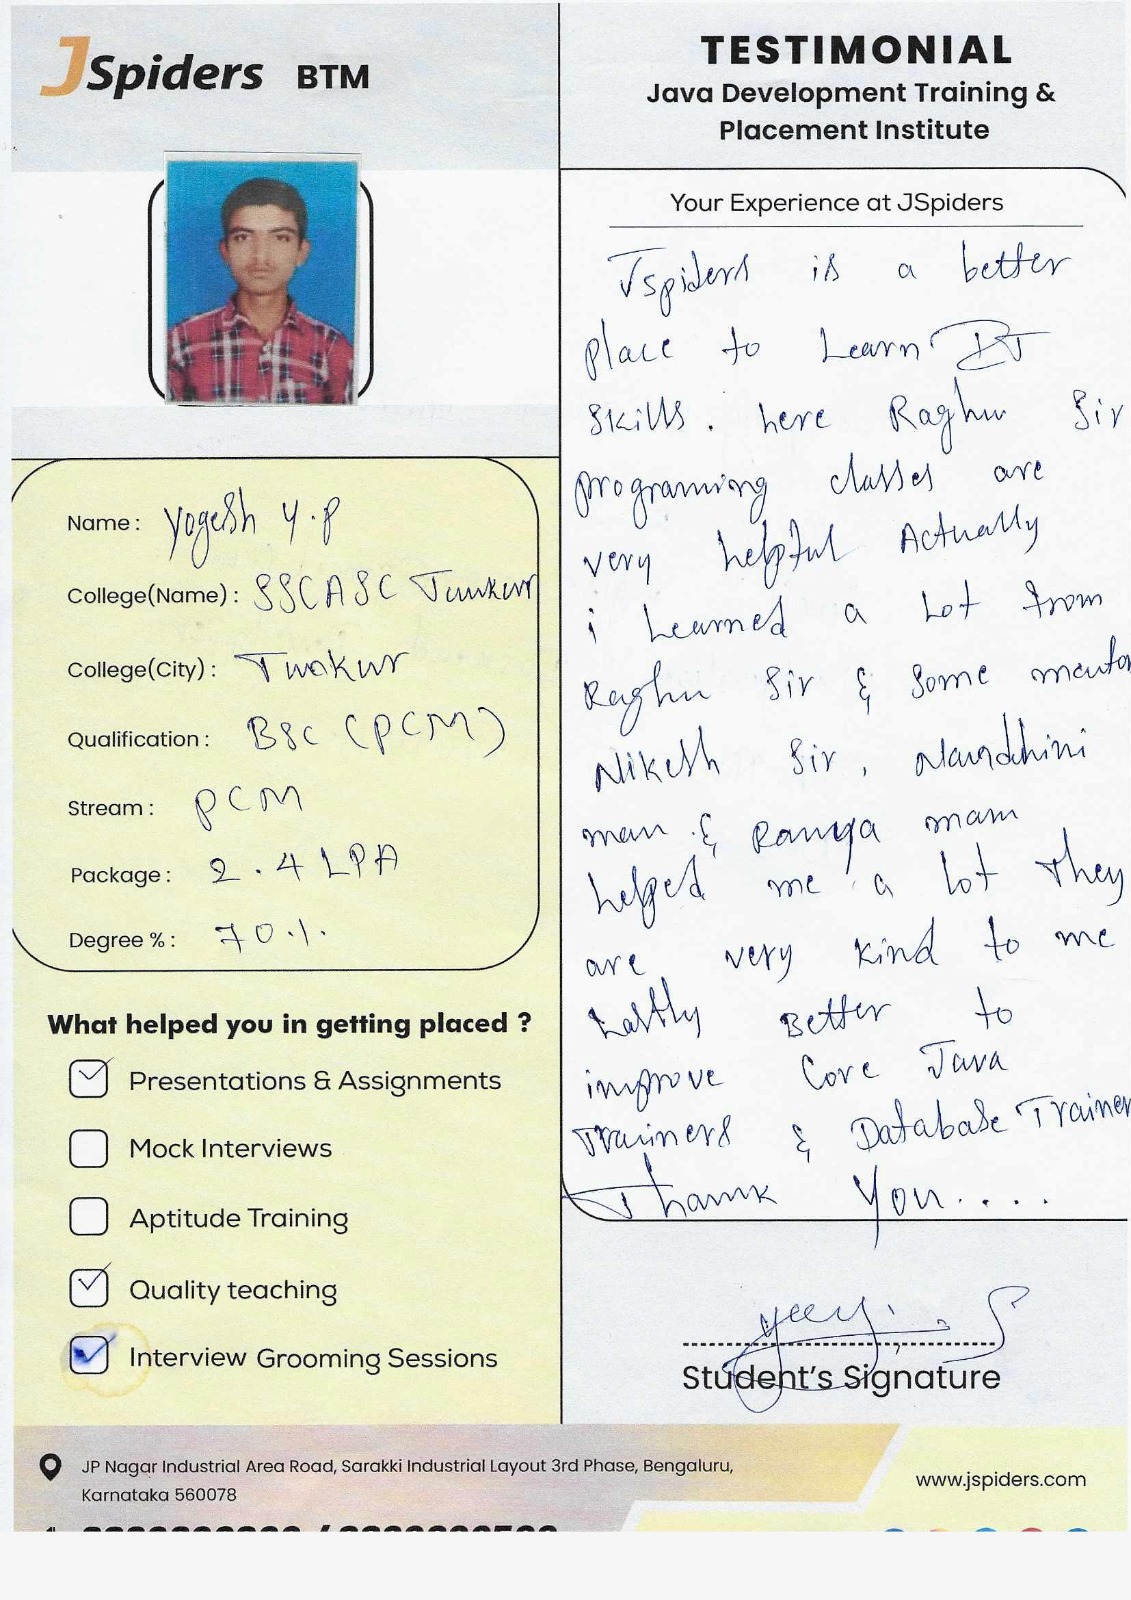 JSpiders BTM
TESTIMONIAL
Java Development Training &
Placement Institute
Name : Yogesh Y.P
College(Name) : SSCASC Tumkur
College(City) : Tumkur
Qualification : BSC (PCM)
Stream : PCM
Package : 2.4 LPA
Degree % : 70%
What helped you in getting placed ?
Presentations & Assignments
Mock Interviews
Aptitude Training
Quality teaching
Interview Grooming Sessions
Your Experience at JSpiders
Jspiders is a better
place to Learn IT
Skills. here Raghu Sir
programing classes are
very helpful Actually
i Learned a Lot from
Raghu Sir & some mentor
Nikesh Sir, Nandhini
mam & Ramya mam
helped me a lot They
are very kind to me
Lastly Better to
improve Core Java
Trainers & Database Trainer
Thank You....
Student's Signature
JP Nagar Industrial Area Road, Sarakki Industrial Layout 3rd Phase, Bengaluru,
Karnataka 560078
www.jspiders.com